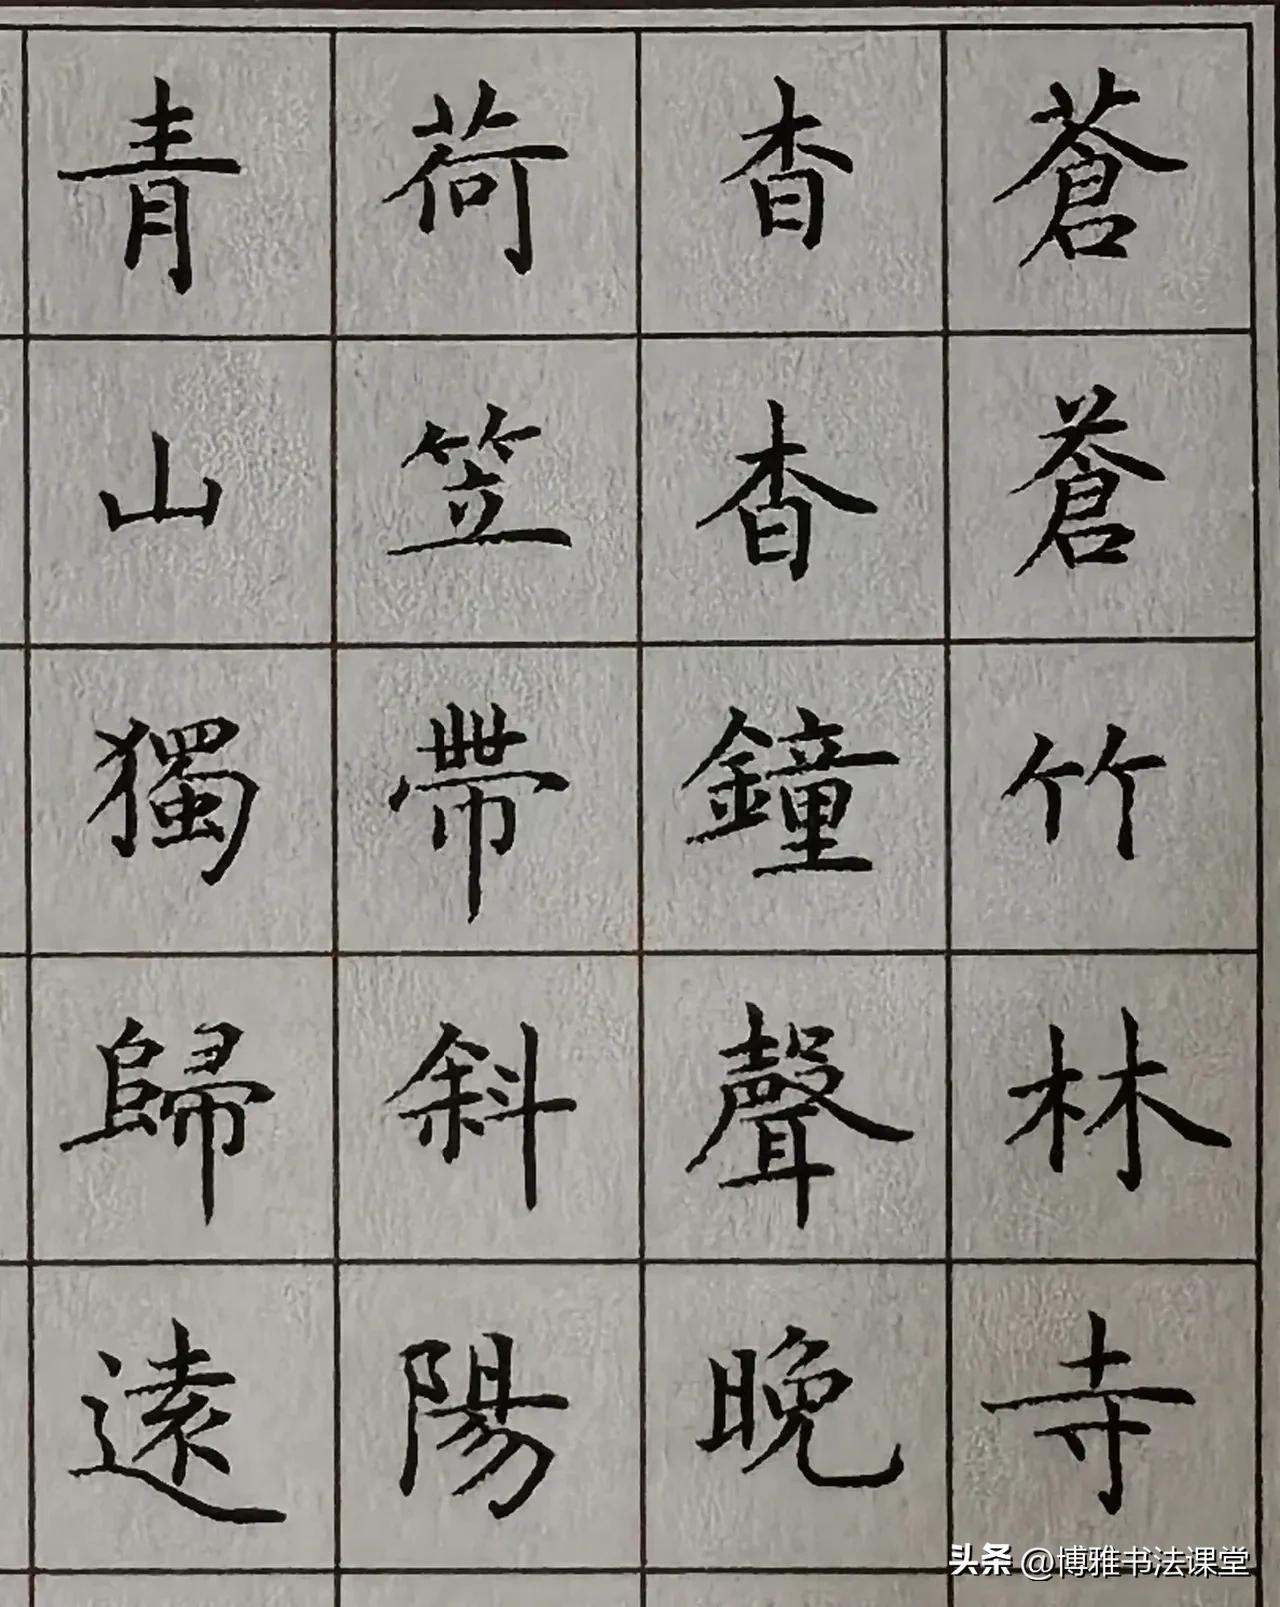 蒼蒼竹林寺
杳杳鐘聲晚
荷笠帶斜陽
青山獨歸遠
头条 @博雅书法课堂